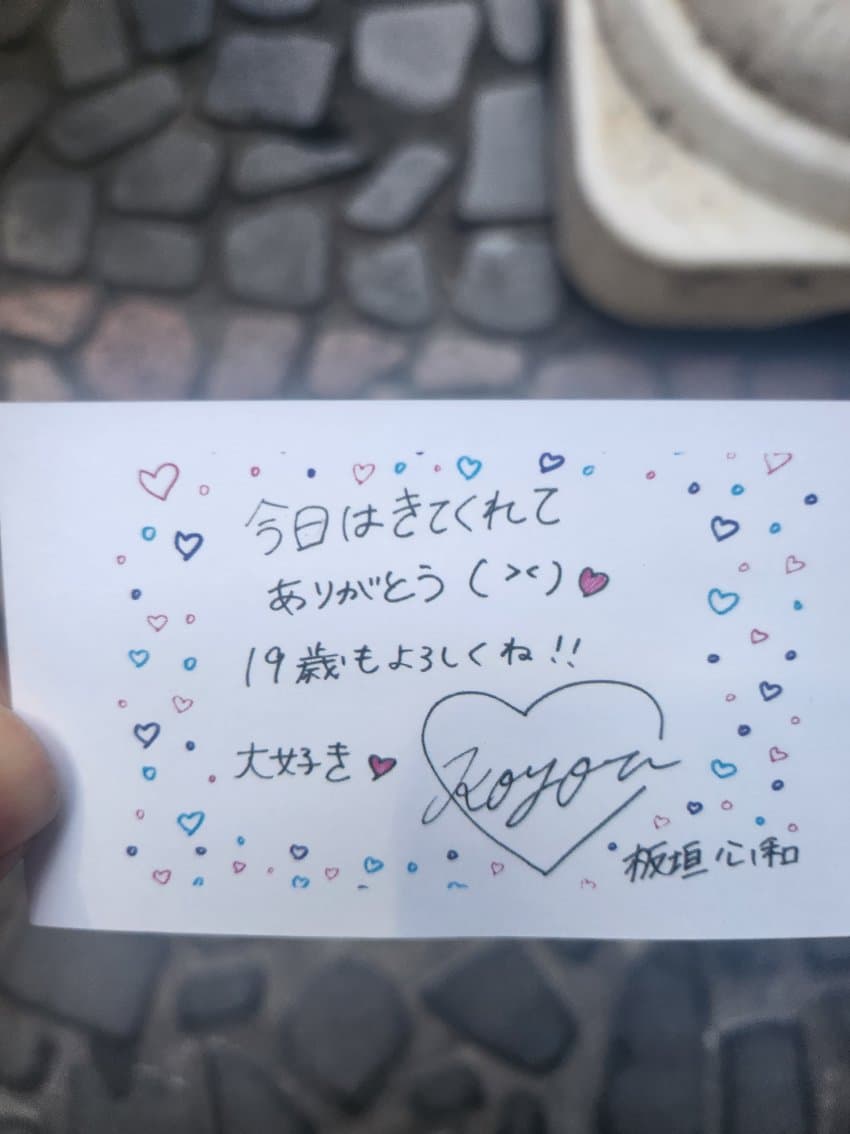 今日はきてくれて
ありがとう(><)♥
19歳もよろしくね!!
大好き♥
Koyori
板垣心和